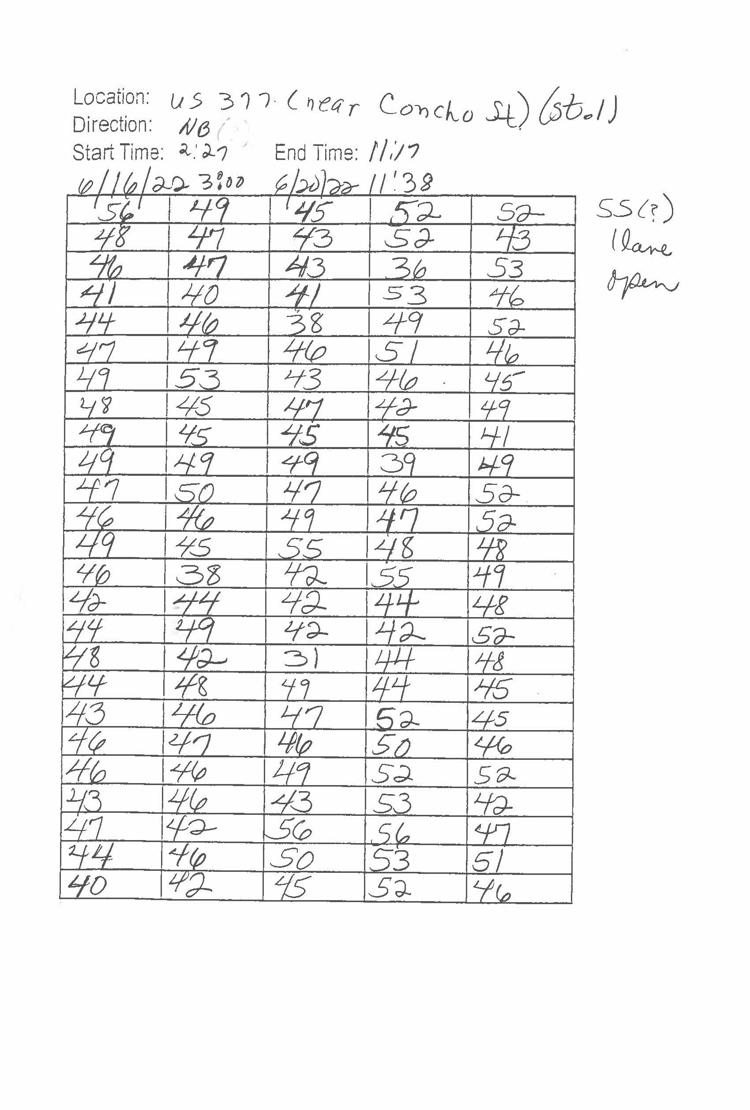 Location: US 377 (near Concho St) (St. 1)
Direction: NB
Start Time: 2:27 End Time: 11:17
6/16/22 3:00 6/20/22 11:38
56 49 45 52 52 SS(?)
48 47 43 52 43 1 lane
46 47 43 36 53 open
41 40 41 53 46
44 46 38 49 52
47 49 46 51 46
49 53 43 46 45
48 45 47 42 49
49 45 45 45 41
49 49 49 39 49
47 50 47 46 52
46 46 49 47 52
49 45 55 48 48
46 38 42 55 49
42 44 42 44 48
44 49 42 42 52
48 42 31 44 48
44 48 49 44 45
43 46 47 52 45
46 47 46 50 46
46 46 49 52 52
43 46 43 53 42
47 42 56 56 47
44 46 50 53 51
40 42 45 52 46